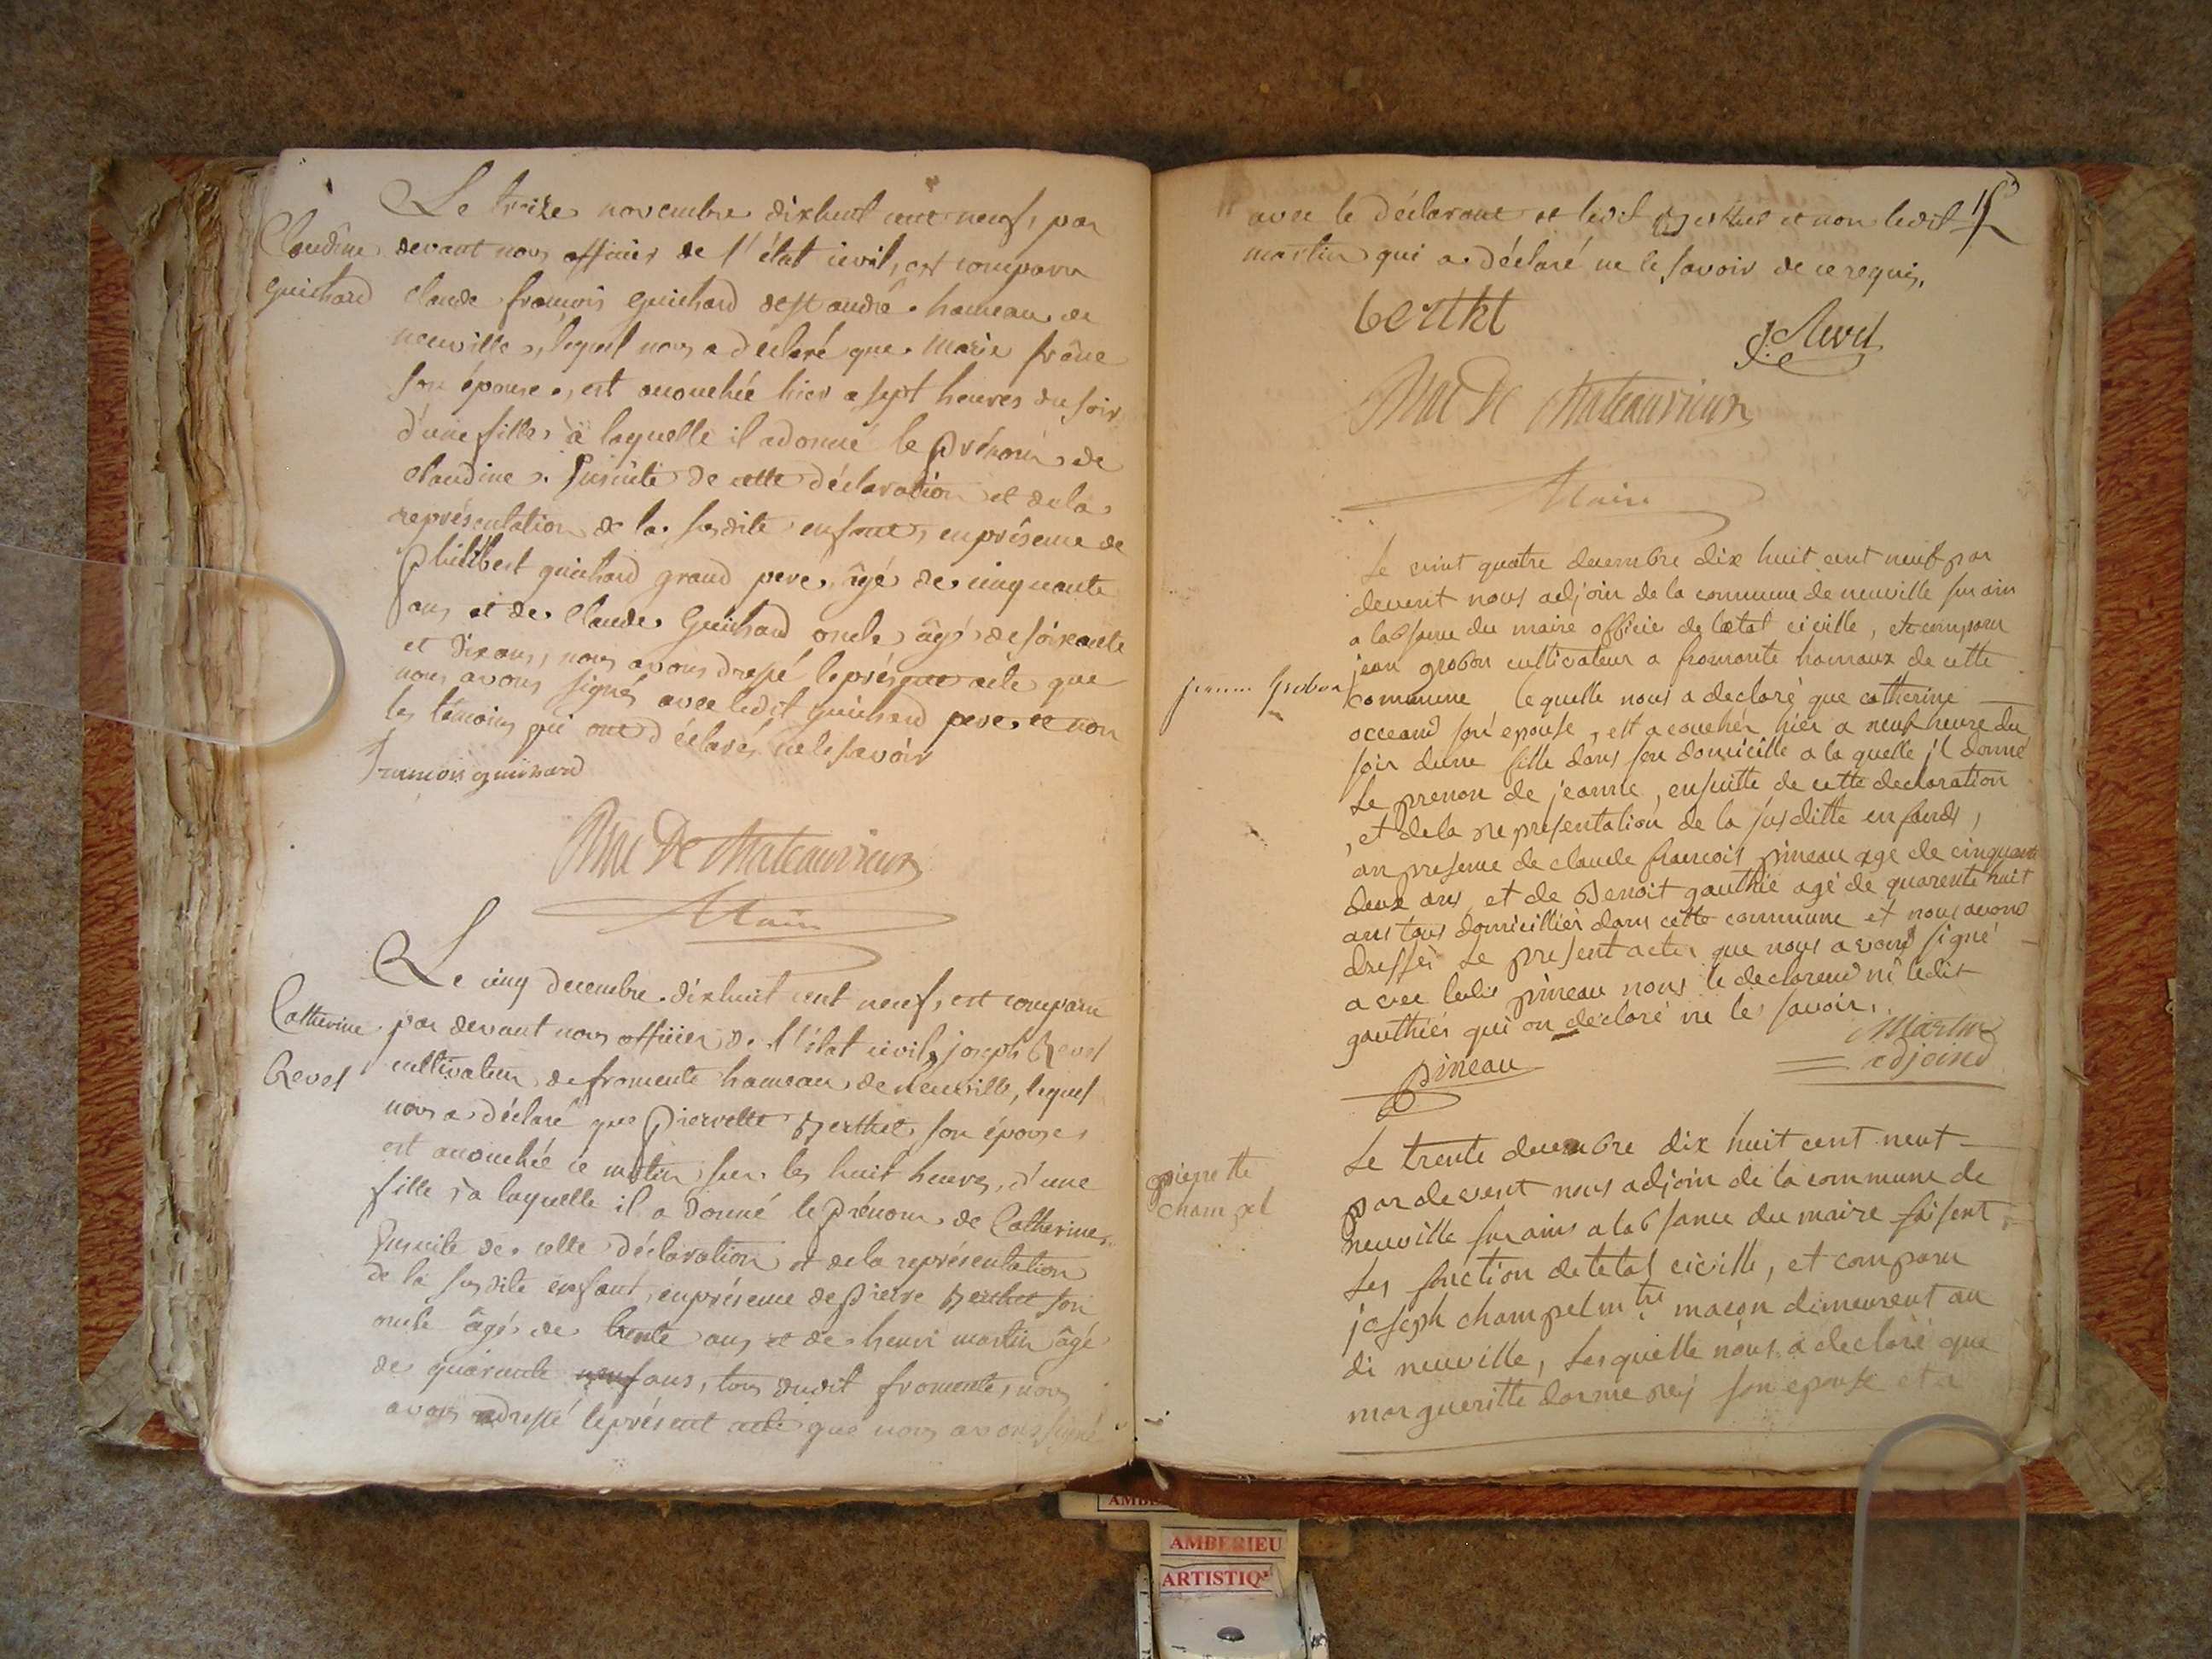 Le treize novembre dixhuit cent neuf, par
Claudine devant nous officier de l'état civil, est comparu
guichard Claude françois guichard de st andré hameau de
neuville, lequel nous a déclaré que Marie frône
son épouse, est accouchée hier a sept heures du soir
d'une fille, à laquelle il a donné le prénom de
Claudine. Ensuite de cette déclaration et de la
représentation de la susdite enfant, en présence de
philibert guichard grand pere, âgé de cinquante
ans et de Claude Guichard oncle, âgé de soixante
et dix ans, nous avons dressé le présent acte que
nous avons signé avec ledit guichard pere et non
les témoins qui ont déclaré ne le savoir
françois guichard
De Chateauvieux
Maire
Le cinq decembre dixhuit cent neuf, est comparu
Catherine par devant nous officier de l'état civil, joseph Revel
Revel cultivateur de fromente hameau de neuville, lequel
nous a déclaré que Pierrette Berthet son épouse
est accouchée ce matin sur les huit heures, d'une
fille, à laquelle il a donné le prénom de Catherine,
Ensuite de cette déclaration et de la représentation
de la susdite enfant, en présence de Pierre Berthet son
oncle âgé de trente ans et de henri martin âgé
de quarante neuf ans, tous dudit fromente, nous
avons dressé le présent acte que nous avons signé
avec le déclarant et ledit Berthet et non ledit
martin qui a déclaré ne le savoir de ce requis,
berthet
J. Revel
De Chateauvieux
Maire
Le vint quatre decembre dix huit cent neuf par
devent nous adjoin de la commune de neuville sur ain
a labsance du maire officier de letat civille, et comparu
jean grobon cultivateur a fromante hamaux de cette
Grobon commune lequelle nous a declaré que catherine
occeand son épouse, est acouchér hier a neuf heure du
soir dune fille dans son domicille a la quelle jl donné
Le prenon de jeanne, ensuitte de cette declaration
, et de la representation de la susditte enfands,
an presence de claude francois pineau age de cinquante
deux ans et de Benoit gauthié agé de quarente huit
ans tous domicilliér dans cette commune et nous avons
dressér Le present acter que nous avond signé
avec ledis pineau nous le declarend ni ledit
gauthiér qui on declaré ne les savoir,
Martin
adjoind
pineau
Le trente decembre dix huit cent neut
pierrette par devent nous adjoin de la commune de
champel neuville sur ains a labsance du maire faisent
Les fonction de letat civille, et comparu
joseph champel mtre macon dimeurent au
di neuville, Lesquelle nous a declaré que
margueritte dormerey son epouse et a
AMBERIEU
ARTISTIQ